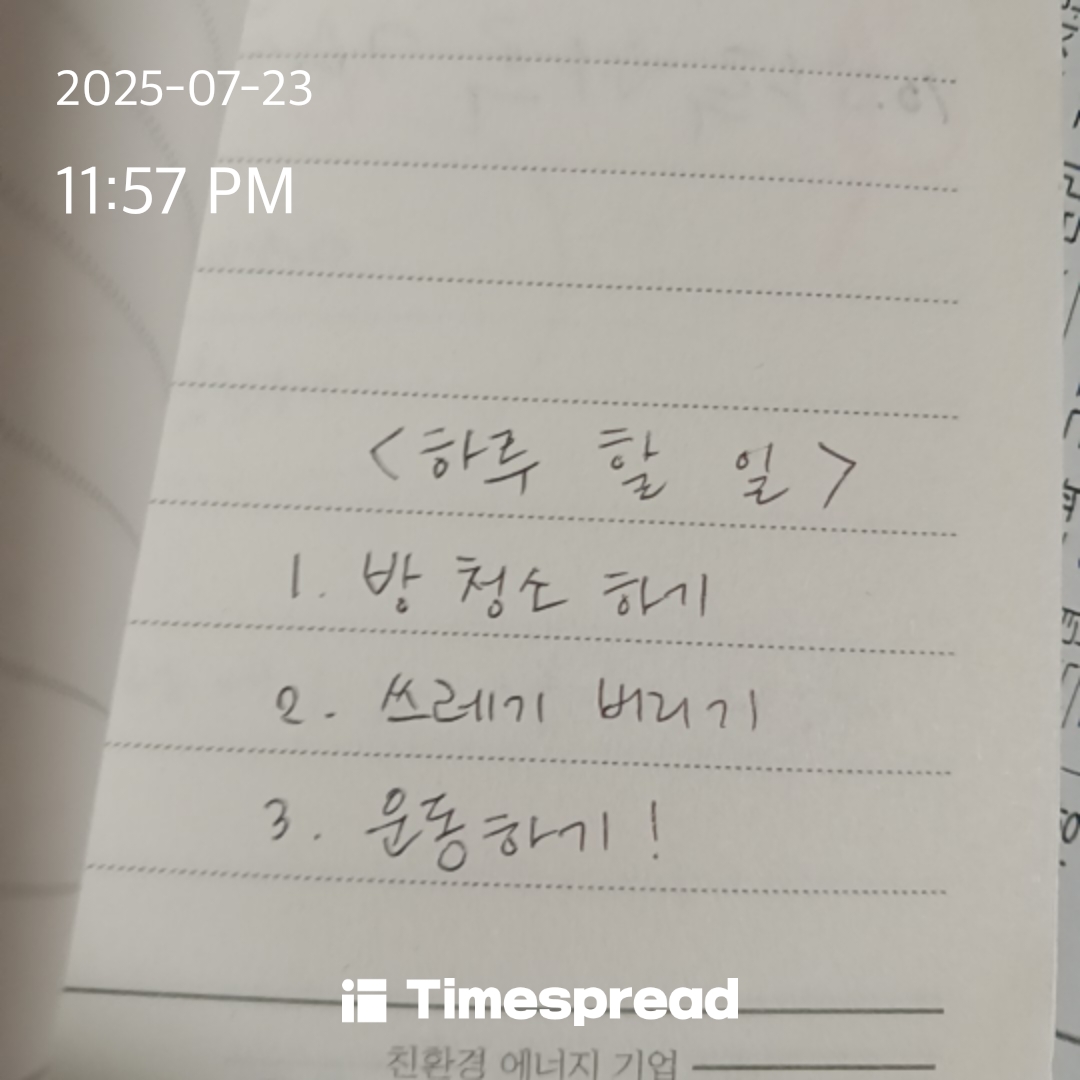 2025-07-23
11:57 PM
<하루 할 일>
1. 방 청소 하기
2. 쓰레기 버리기
3. 운동하기!
Timespread
친환경 에너지 기업